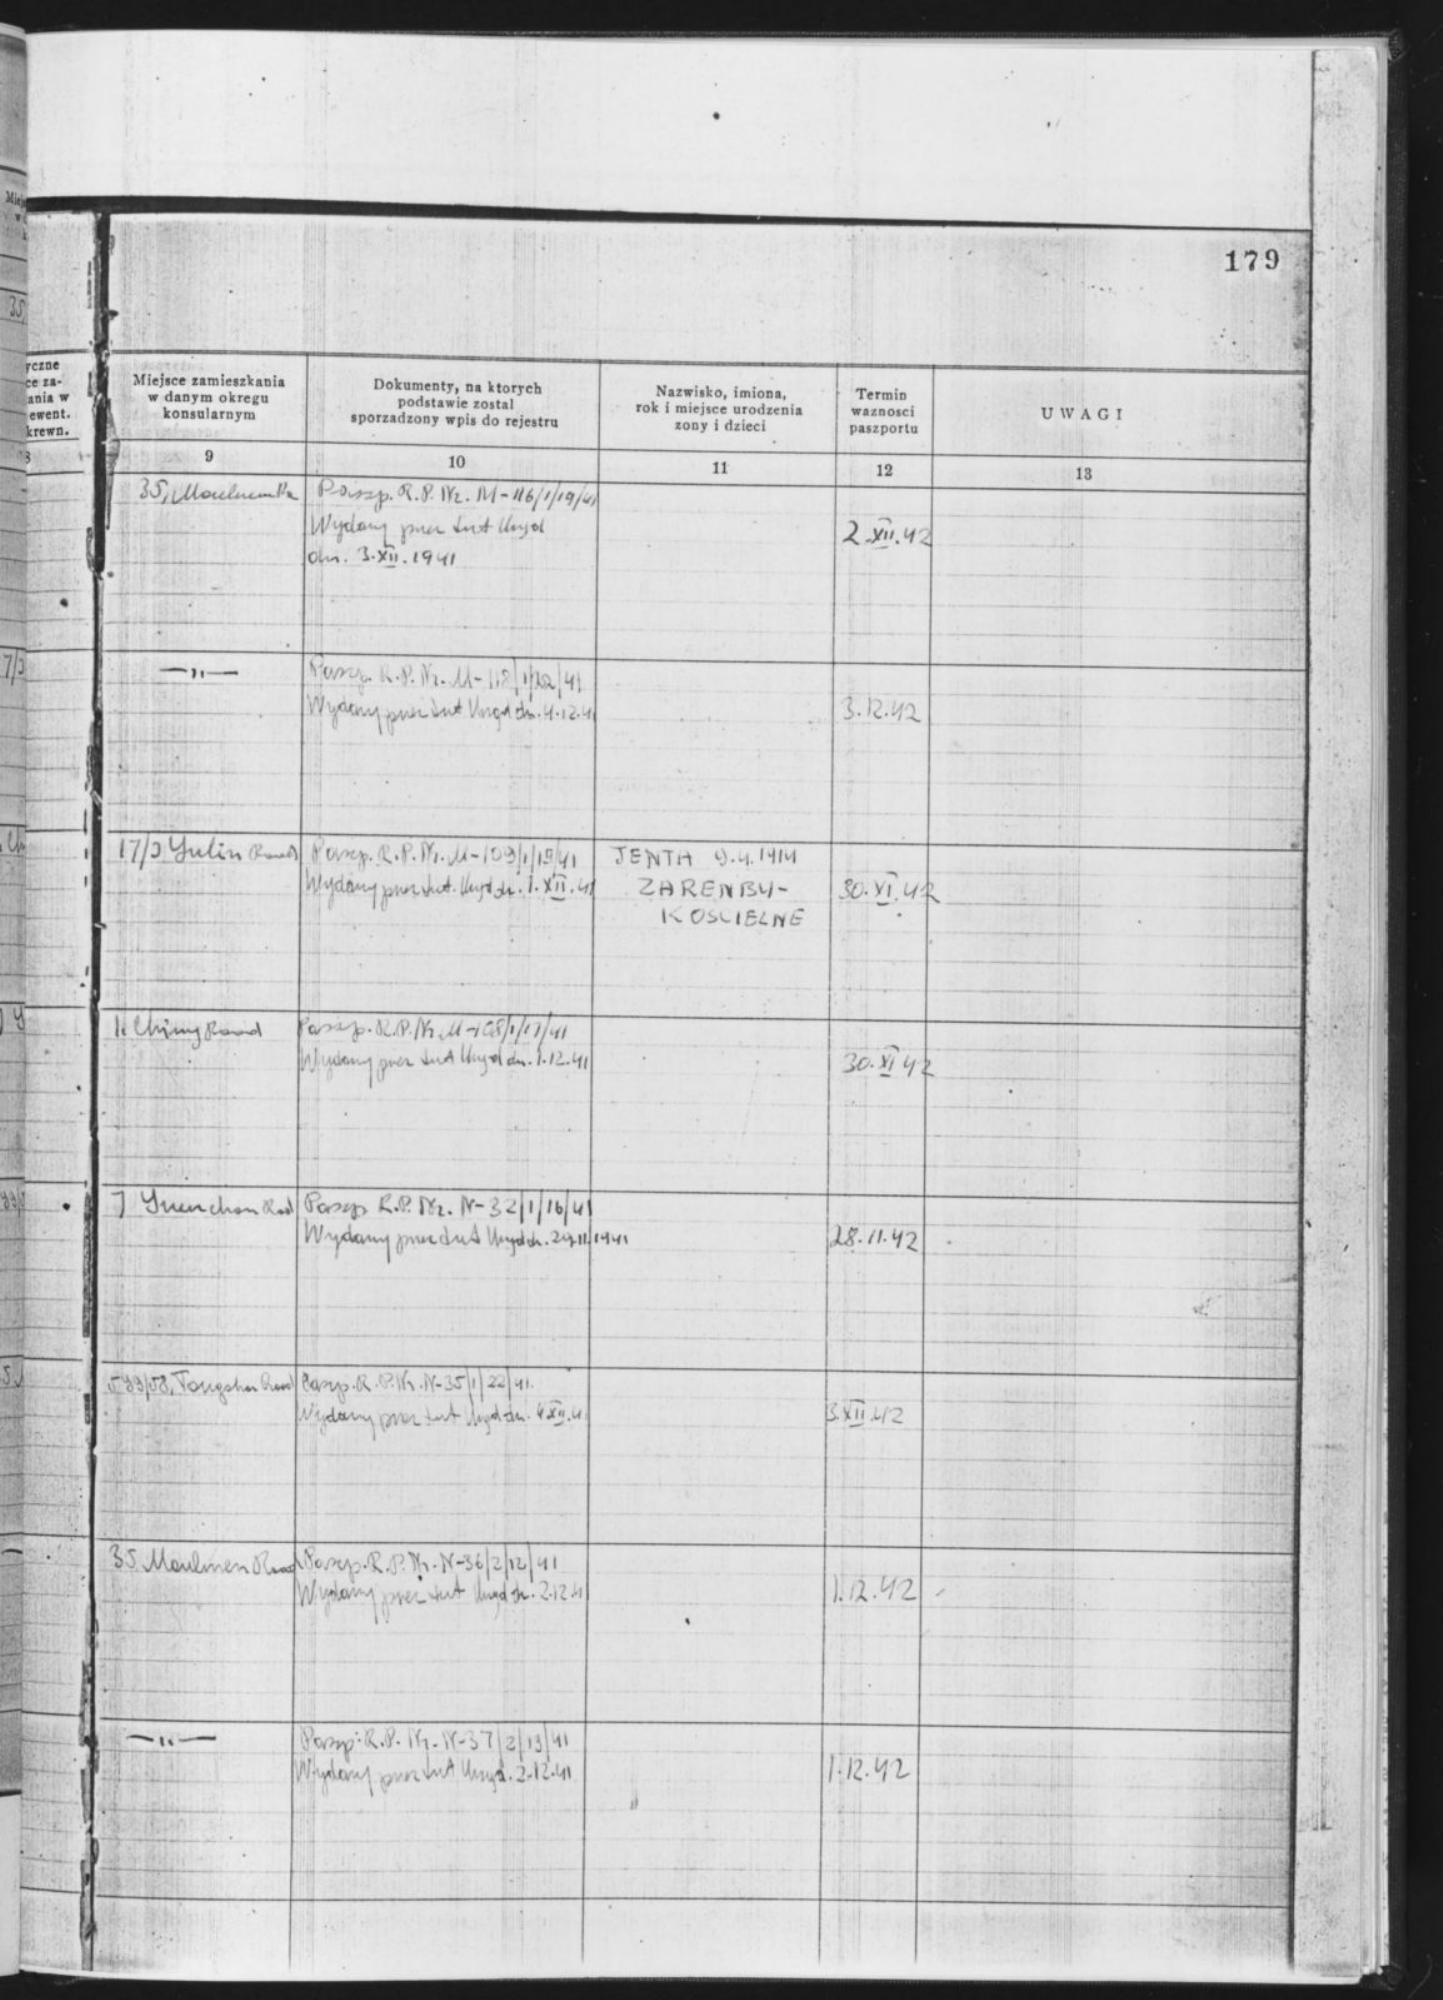 179
Miejsce zamieszkania
w danym okregu
konsularnym
Dokumenty, na ktorych
podstawie zostal
sporzadzony wpis do rejestru
Nazwisko, imiona,
rok i miejsce urodzenia
zony i dzieci
Termin
waznosci
paszportu
UWAGI
9
10
11
12
13
35,
Paszp. R.P. Nr. M-116/1/19/41
Wydany przez tut Urząd
dn. 3.XII.1941
2.XII.42
—„—
Paszp. R.P. Nr. M-118/1/22/41
Wydany przez tut Urząd dn. 4.12.41
3.12.42
17/J Yulin Road
Paszp. R.P. Nr. M-109/1/19/41
Wydany przez tut. Urząd dn. 1.XII.41
JENTA 9.4.1914
ZARENBY-
KOSCIELNE
30.XI.42
Road
Paszp. R.P. Nr M-108/1/17/41
Wydany przez tut Urząd dn. 1.12.41
30.XI 42
Paszp R.P. Nr. N-32/1/16/41
Wydany przez tut Urząd dn. 29.11.1941
28.11.42
599/58, Tongshan Road
Paszp. R.P. Nr. N-35/1/22/41.
Wydany przez tut Urząd dn. 4.XII.41
3.XII.42
35 Moulmen Road
Paszp. R.P. Nr. N-36/2/12/41
Wydany przez tut Urząd dn. 2.12.41
1.12.42
—„—
Paszp. R.P. Nr. N-37/2/13/41
Wydany przez tut Urząd. 2.12.41
1.12.42